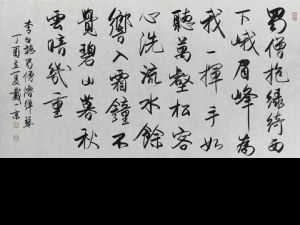 蜀僧抱綠綺西
下峨眉峰為
我一揮手如
聽萬壑松客
心洗流水餘
響入霜鐘不
覺碧山暮秋
雲暗幾重
李白聽蜀僧濬彈琴
丁酉立夏戴小京